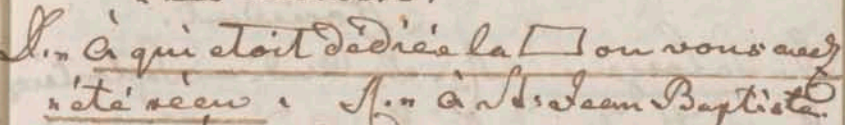 D.n à qui etoit dédiée la ▭ ou vous avez
été réçu. R.n à St. Jean Baptiste.